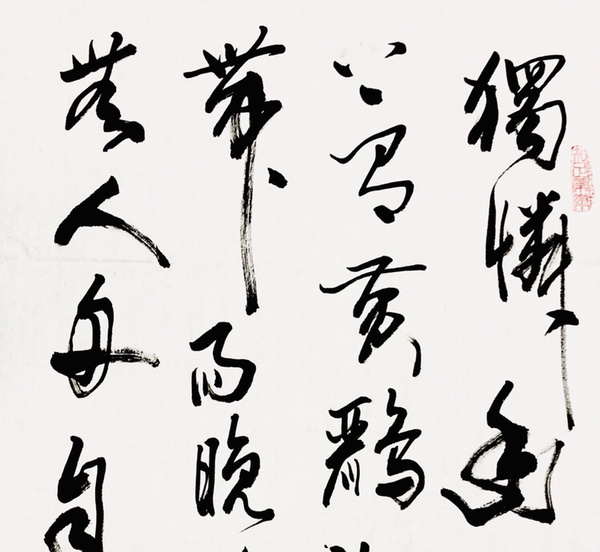 獨憐幽
上有黃鸝
帶雨晚
無人舟自